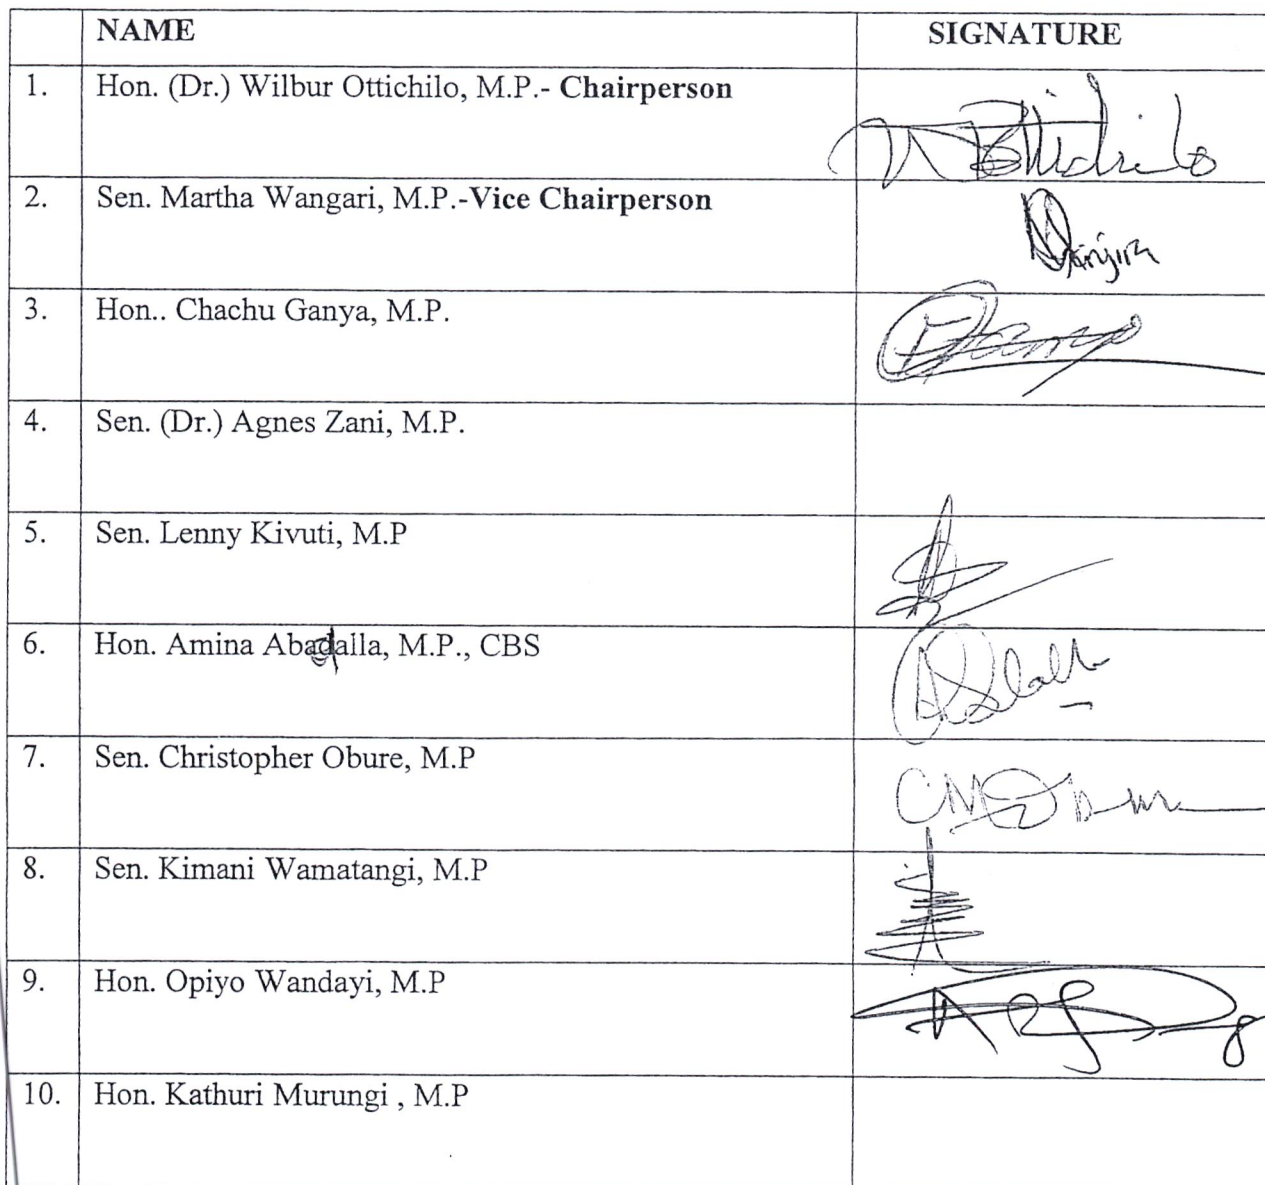 NAME SIGNATURE
1. Hon. (Dr.) Wilbur Ottichilo, M.P.- Chairperson
2. Sen. Martha Wangari, M.P.-Vice Chairperson
3. Hon.. Chachu Ganya, M.P.
4. Sen. (Dr.) Agnes Zani, M.P.
5. Sen. Lenny Kivuti, M.P
6. Hon. Amina Abdalla, M.P., CBS
7. Sen. Christopher Obure, M.P
8. Sen. Kimani Wamatangi, M.P
9. Hon. Opiyo Wandayi, M.P
10. Hon. Kathuri Murungi , M.P